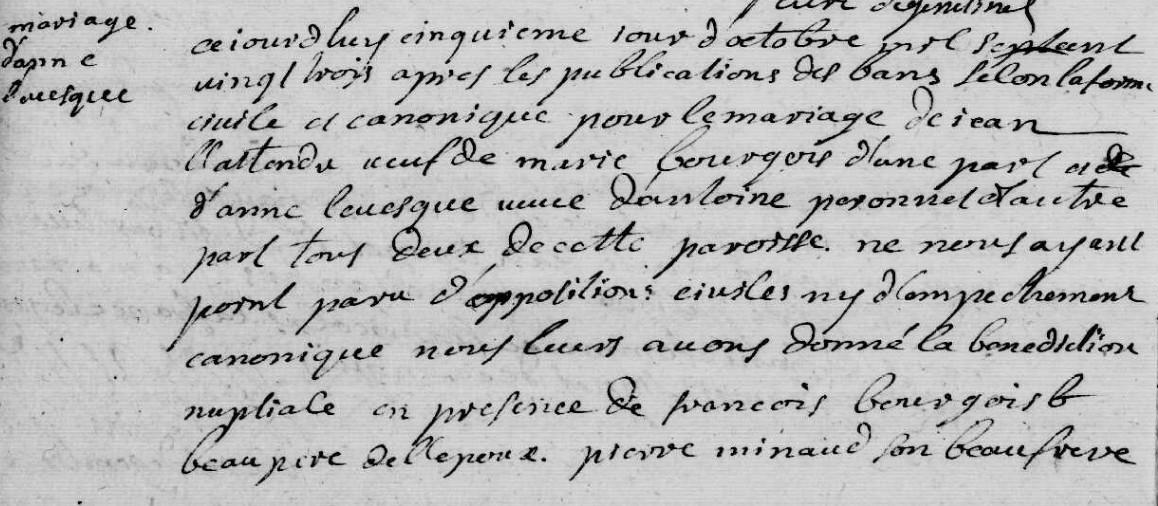 mariage.
d'anne
levesque
cejourdhuy cinquieme jour d'octobre mil sept cent
vingt trois apres les publications des bans selon la forme
civile et canonique pour le mariage de jean
l'attendu veuf de marie bourgois d'une part et de
d'anne levesque veuve d'antoine peronnel d'autre
part tous deux de cette paroisse. ne nous ayant
point paru d'oppositions civiles ny d'empechement
canonique nous leurs avons donné la benediction
nuptiale en presence de francois bourgois
beaupere de l'epoux. pierre minaud son beaufrere